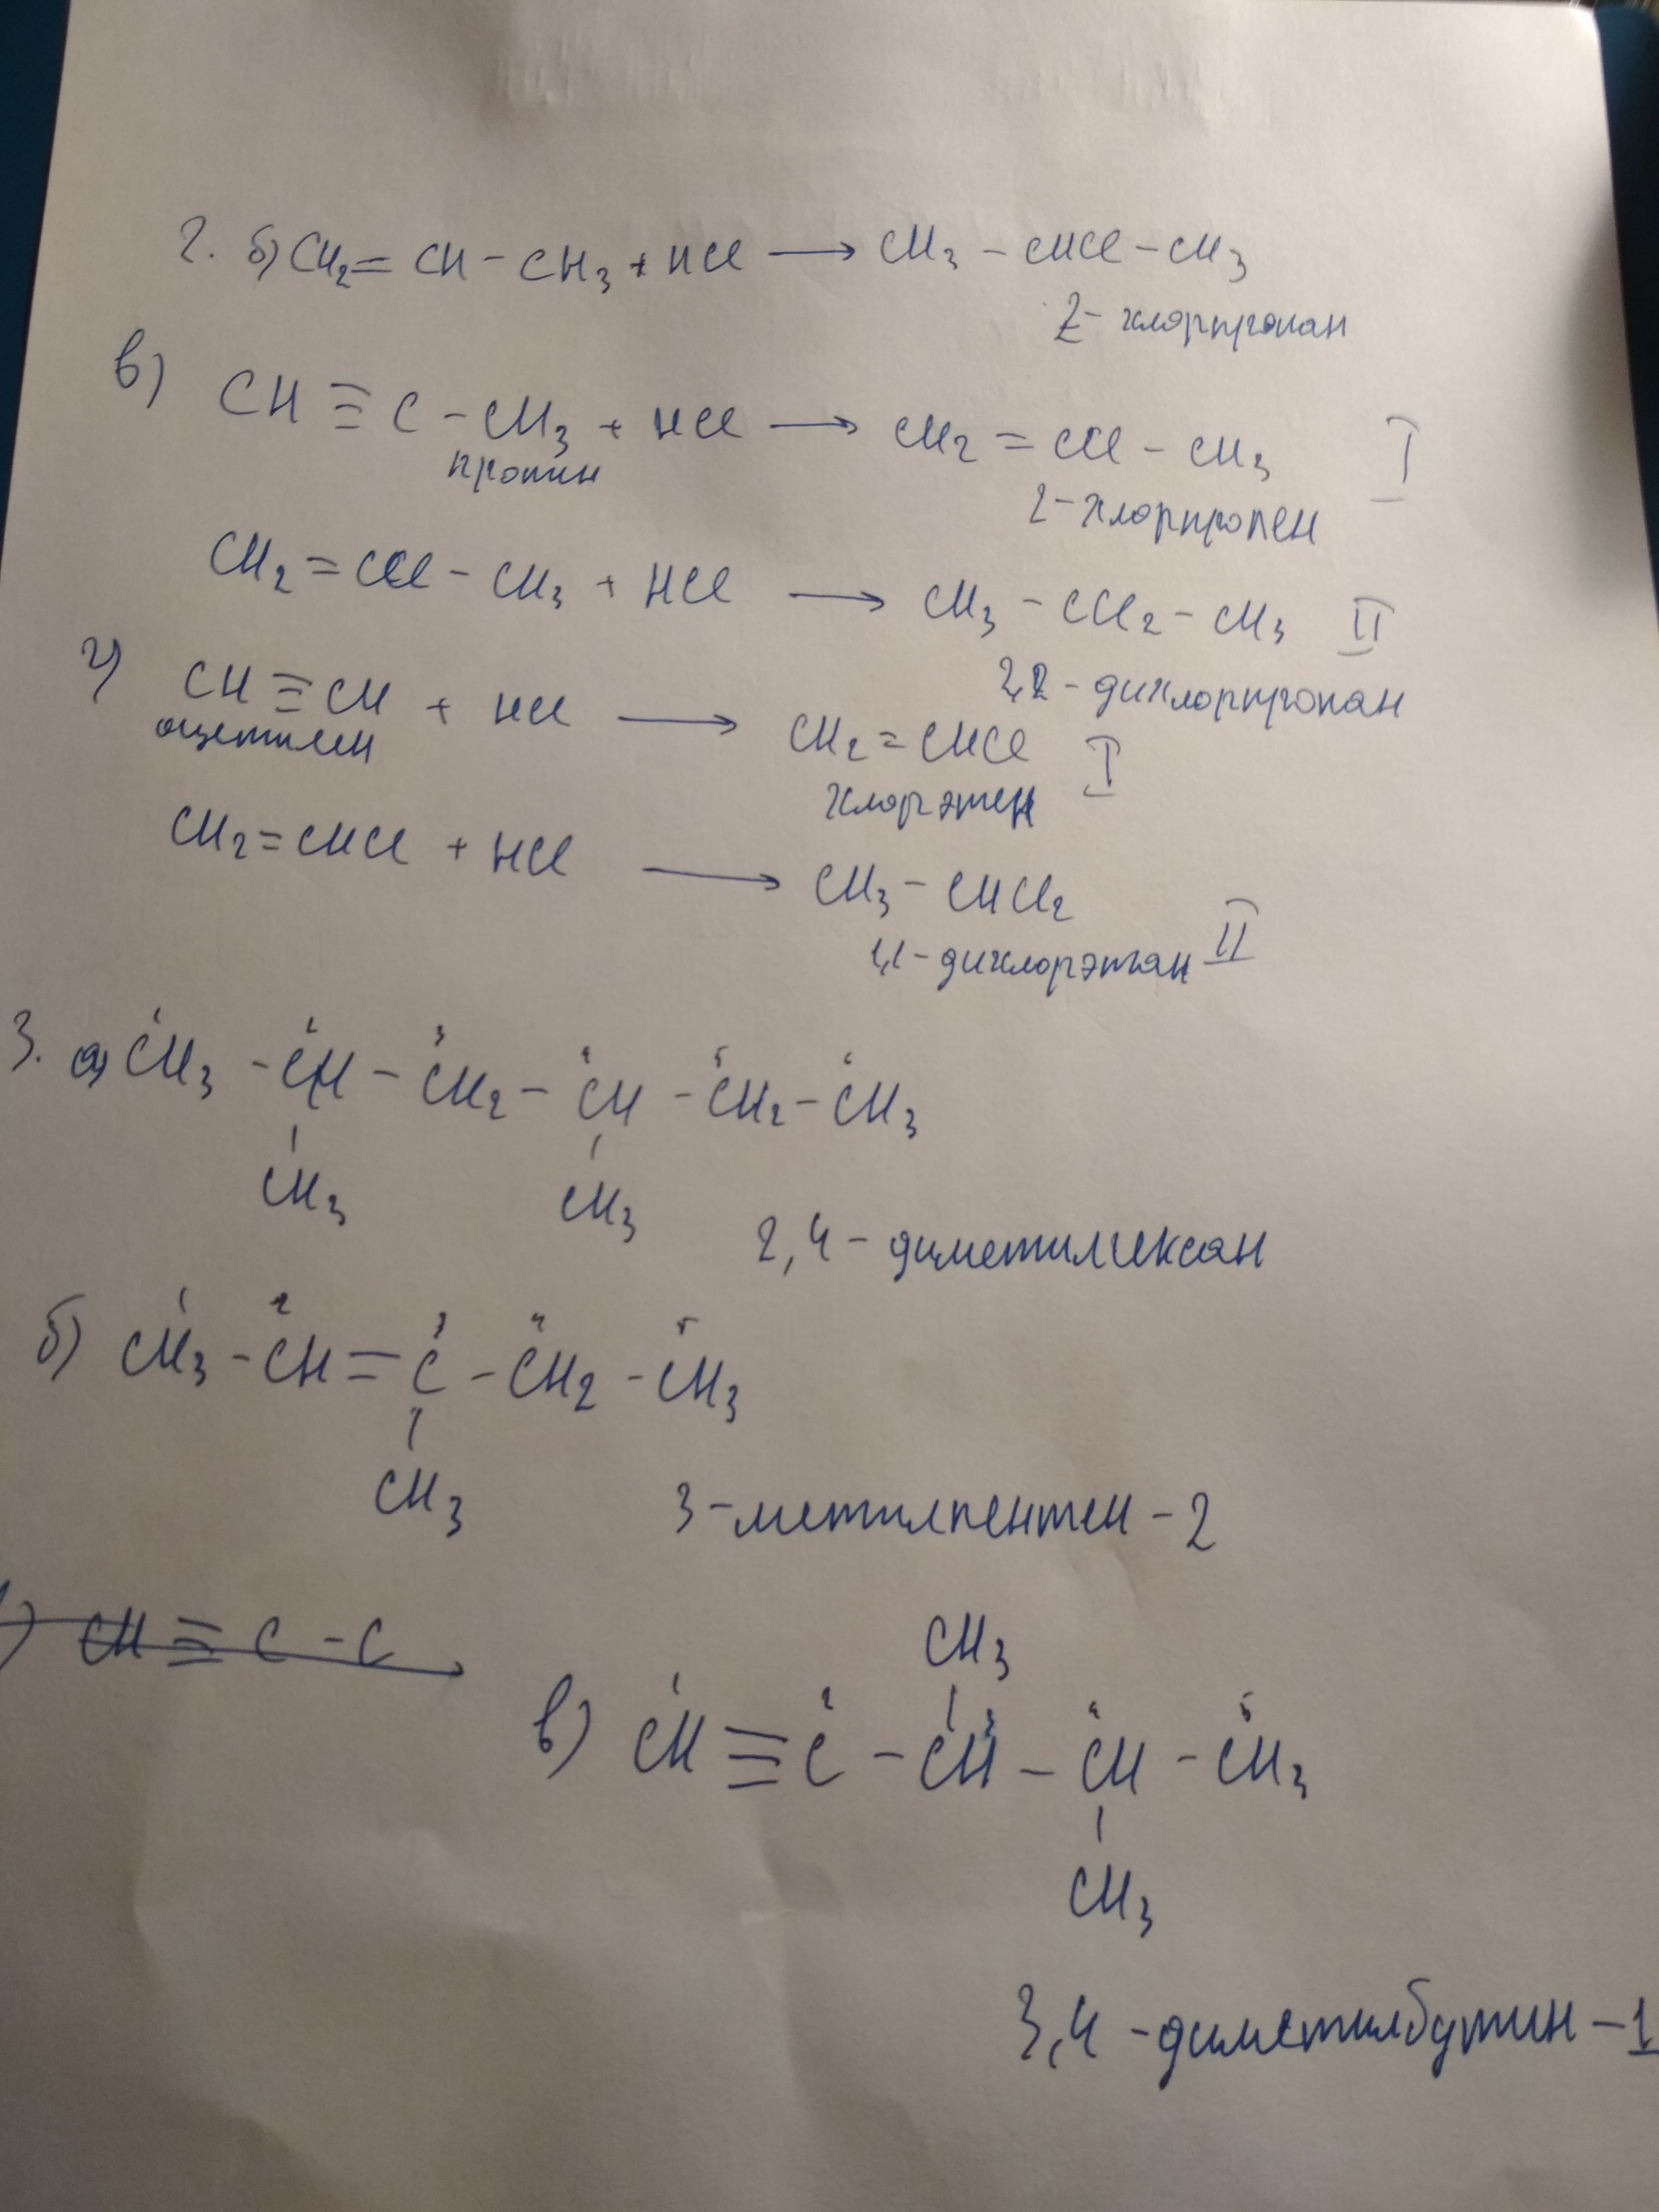 2. б) CH₂ = CH - CH₃ + HCl ⟶ CH₃ - CHCl - CH₃
2- хлорпропан
в) CH ≡ C - CH₃ + HCl ⟶ CH₂ = CCl - CH₃ I
пропин
2-хлорпропен
CH₂ = CCl - CH₃ + HCl ⟶ CH₃ - CCl₂ - CH₃ II
2,2 - дихлорпропан
г) CH ≡ CH + HCl ⟶ CH₂ = CHCl I
ацетилен
хлорэтен
CH₂ = CHCl + HCl ⟶ CH₃ - CHCl₂
1,1 - дихлорэтан II
1 2 3 4 5 6
3. а) CH₃ - CH - CH₂ - CH - CH₂ - CH₃
| |
CH₃ CH₃
2,4 - диметилгексан
1 2 3 4 5
б) CH₃ - CH = C - CH₂ - CH₃
|
CH₃
3-метилпентен - 2
CH ≡ C - C
CH₃
|
1 2 3 4 5
в) CH ≡ C - CH - CH - CH₃
|
CH₃
3,4 - диметилбутин - 1